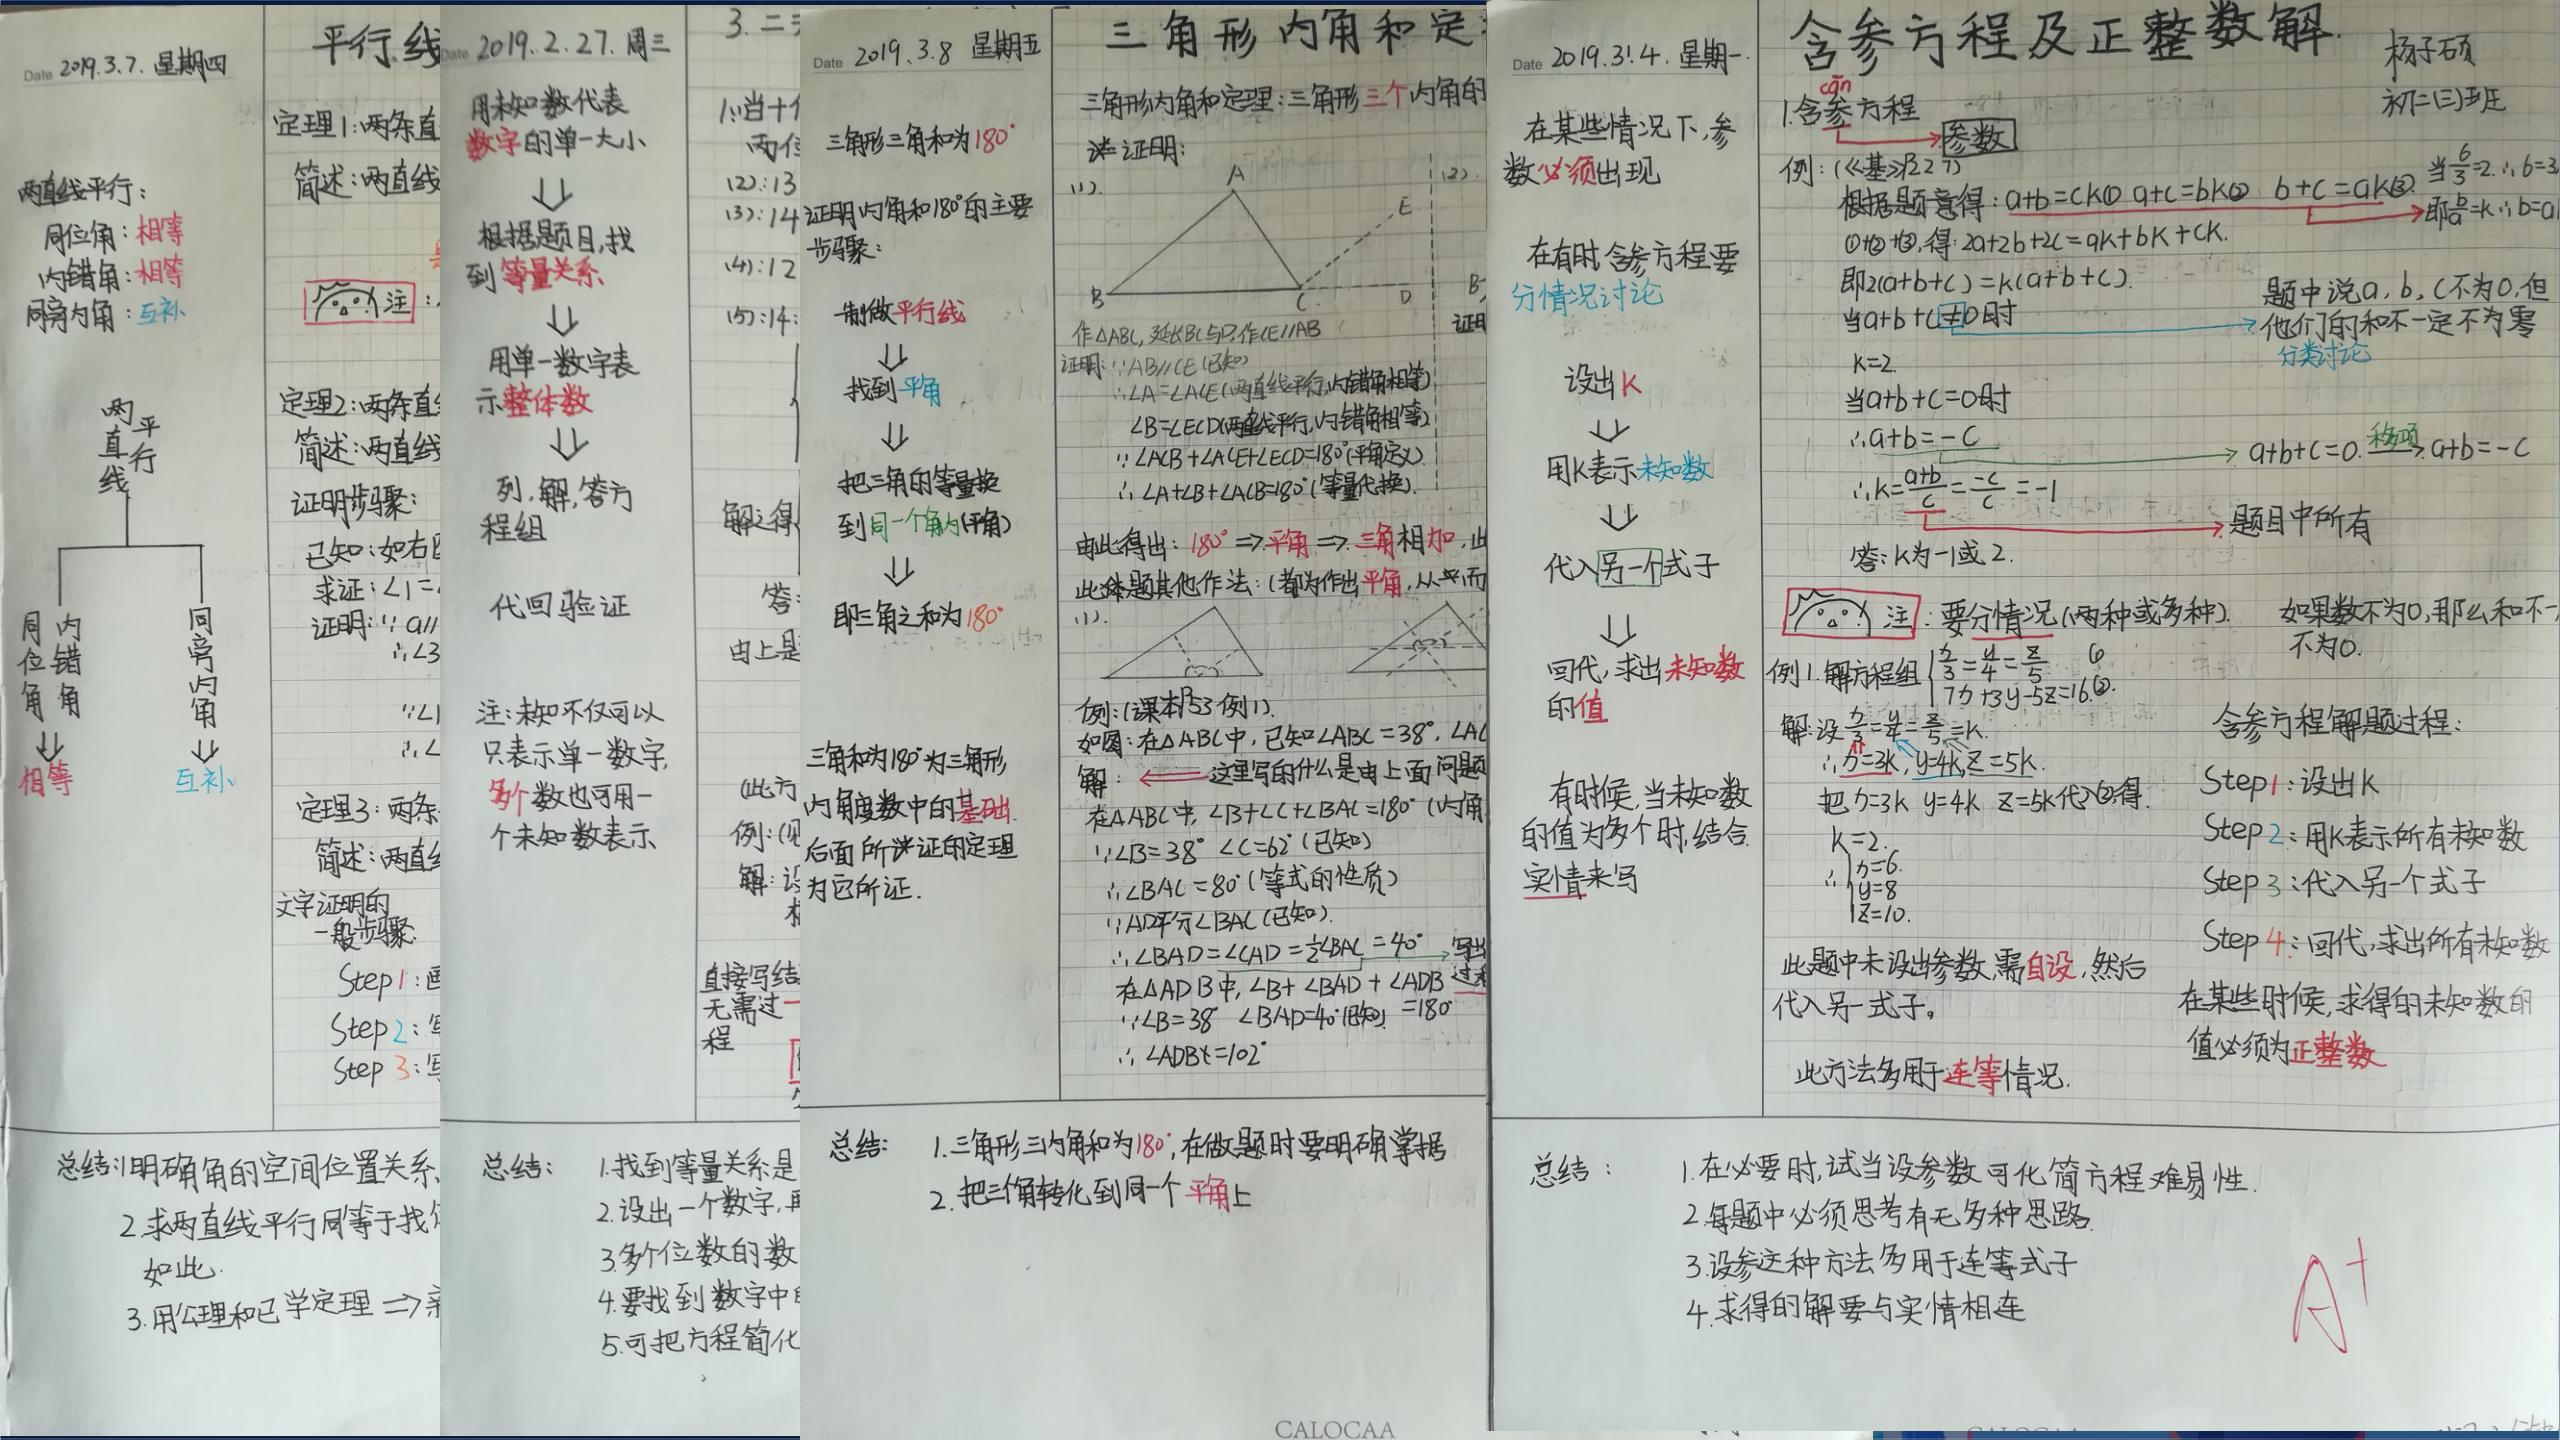 Date 2019.3.7. 星期四
两直线平行:
同位角:相等
内错角:相等
同旁内角:互补
两直线平行
同位角
内错角
相等
同旁内角
互补
平行线
定理1:两条直
简述:两直线
注:
定理2:两条直
简述:两直线
证明步骤:
已知:如右
求证:∠1=
证明:∵a//
∴∠3
∵∠1
∴∠
定理3:两条
简述:两直线
文字证明的
一般步骤:
Step1:画
Step2:写
Step3:写
总结:1.明确角的空间位置关系.
2.求两直线平行同等于找
如此.
3.用公理和已学定理⇒
Date 2019.2.27.周三
用未知数代表
数字的单一大小
⇓
根据题目,找
到等量关系
⇓
用单一数字表
示整体数
⇓
列,解,答方
程组
代回验证
注:未知不仅可以
只表示单一数字,
多个数也可用一
个未知数表示
3.二
1.当十
两位
(2):13
(3):14
(4):12
(5):14:
解之得
答:
由上是
(此方
例:(见
解:设
直接写结
无需过
程
总结:
1.找到等量关系是
2.设出一个数字,再
3.多个位数的数
4.要找到数字中
5.可把方程简化
Date 2019.3.8 星期五
三角形三角和为180°
证明内角和180°的主要
步骤:
制做平行线
⇓
找到平角
⇓
把三角的等量换
到同一个角内(平角)
⇓
即三角之和为180°
三角和为180°为三角形
内角度数中的基础.
后面所证的定理
为它所证.
三角形内角和定
三角形内角和定理:三角形三个内角的
证明:
(1).
A
E
B
C
D
(2).
B
证明
作△ABC,延长BC与D,作CE//AB
证明:∵AB//CE(已知)
∴∠A=∠ACE(两直线平行,内错角相等)
∠B=∠ECD(两直线平行,内错角相等)
∵∠ACB+∠ACE+∠ECD=180°(平角定义)
∴∠A+∠B+∠ACB=180°(等量代换).
由此得出:180°⇒平角⇒三角相加,此
此题其他作法:(都为作出平角,从平而
(1).
例:(课本P53例1).
如图:在△ABC中,已知∠ABC=38°,∠AC
解:⇐这里写的什么是由上面问题
在△ABC中,∠B+∠C+∠BAC=180°(内角
∵∠B=38° ∠C=62°(已知)
∴∠BAC=80°(等式的性质)
∵AD平分∠BAC(已知).
∴∠BAD=∠CAD=½∠BAC=40° → 写出
过程
在△ADB中,∠B+∠BAD+∠ADB
=180°
∵∠B=38° ∠BAD=40°(已知)
∴∠ADB=102°
总结:
1.三角形三内角和为180°,在做题时要明确掌握
2.把三角转化到同一个平角上
CALOCAA
Date 2019.3.4. 星期一.
在某些情况下,参
数必须出现
在有时含参方程要
分情况讨论
设出K
⇓
用K表示未知数
⇓
代入另一个式子
⇓
回代,求出未知数
的值
有时候,当未知数
的值为多个时,结合
实情来写
含参方程及正整数解.
杨子硕
初二(三)班
cān
1.含参方程
参数
例:(《基》P22 7)
当6/3=2.∴b=3,
根据题意得:a+b=CK① a+c=bK② b+c=aK③.
即b/a=K∴b=a
①+②+③,得:2a+2b+2c=aK+bK+CK.
即2(a+b+c)=K(a+b+c).
当a+b+c≠0时
题中说a,b,c不为0,但
他们的和不一定不为零
分类讨论
K=2.
当a+b+c=0时
∴a+b=-c
a+b+c=0. 移项 a+b=-c
∴K=a+b/c=-c/c=-1
题目中所有
答:K为-1或2.
注:要分情况(两种或多种).
如果数不为0,那么和不一
不为0.
例1.解方程组 x/3=y/4=z/5 ①
7x+3y-5z=16.②.
解:设x/3=y/4=z/5=K.
∴x=3K,y=4K,z=5K.
把x=3K y=4K z=5K代入②得.
K=2.
∴ x=6
y=8
z=10.
含参方程解题过程:
Step1:设出K
Step2:用K表示所有未知数
Step3:代入另一个式子
Step4:回代,求出所有未知数
此题中未设出参数,需自设,然后
代入另一式子。
此方法多用于连等情况.
在某些时候,求得的未知数的
值必须为正整数
总结:
1.在必要时,试当设参数可化简方程难易性.
2.每题中必须思考有无多种思路.
3.设参这种方法多用于连等式子
4.求得的解要与实情相连
A+